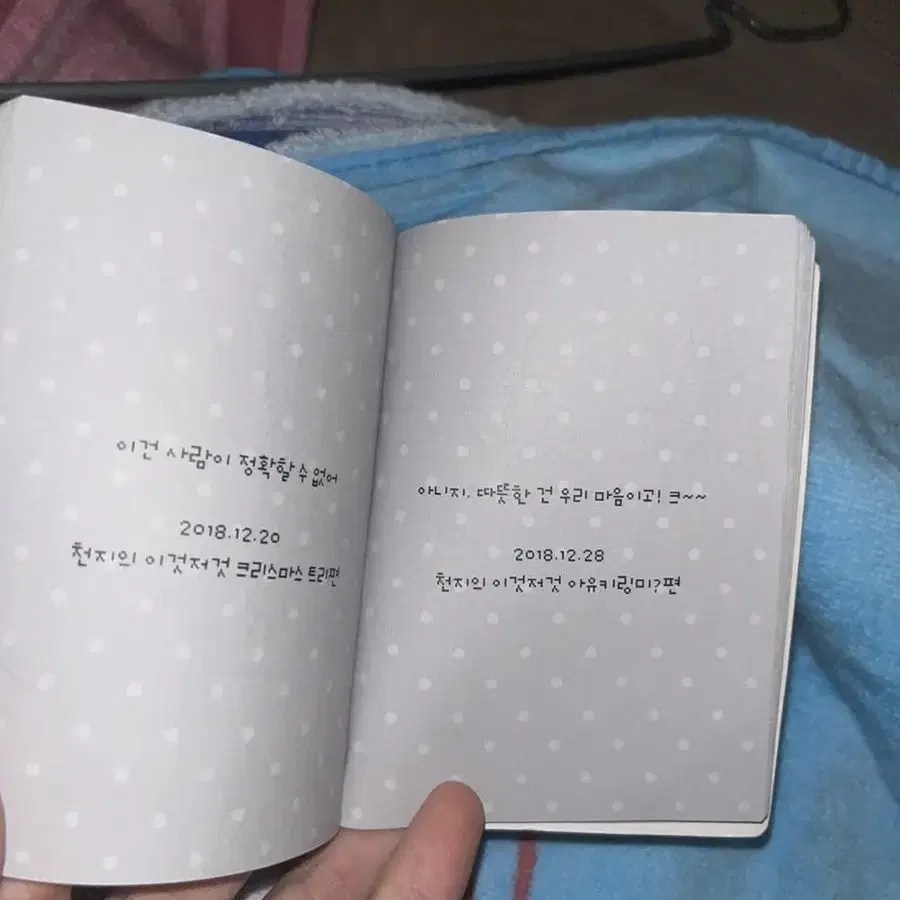 이건 사람이 정확할 수 없어
2018.12.20
천지의 이것저것 크리스마스 트리편
아니지. 따뜻한 건 우리 마음이고! 크~~
2018.12.28
천지의 이것저것 아유키링미?편